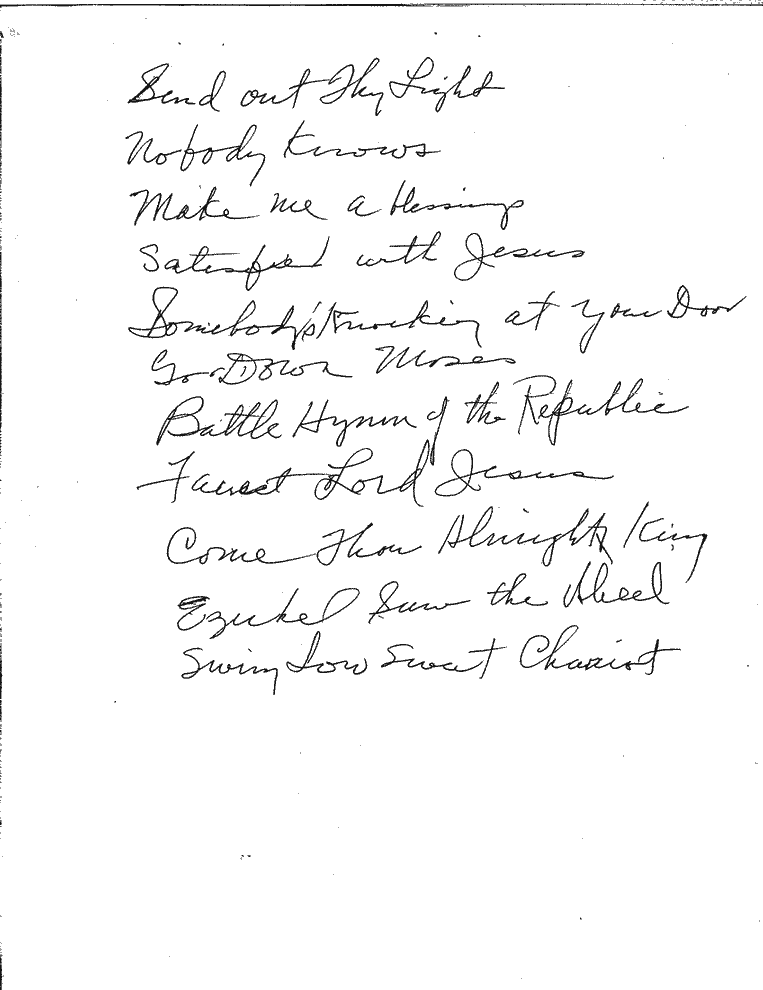 Send out Thy Light
Nobody Knows
Make me a blessing
Satisfied with Jesus
Somebody's Knocking at Your Door
Go Down Moses
Battle Hymn of the Republic
Fairest Lord Jesus
Come Thou Almighty King
Ezekel Saw the Wheel
Swing Low Sweet Chariot